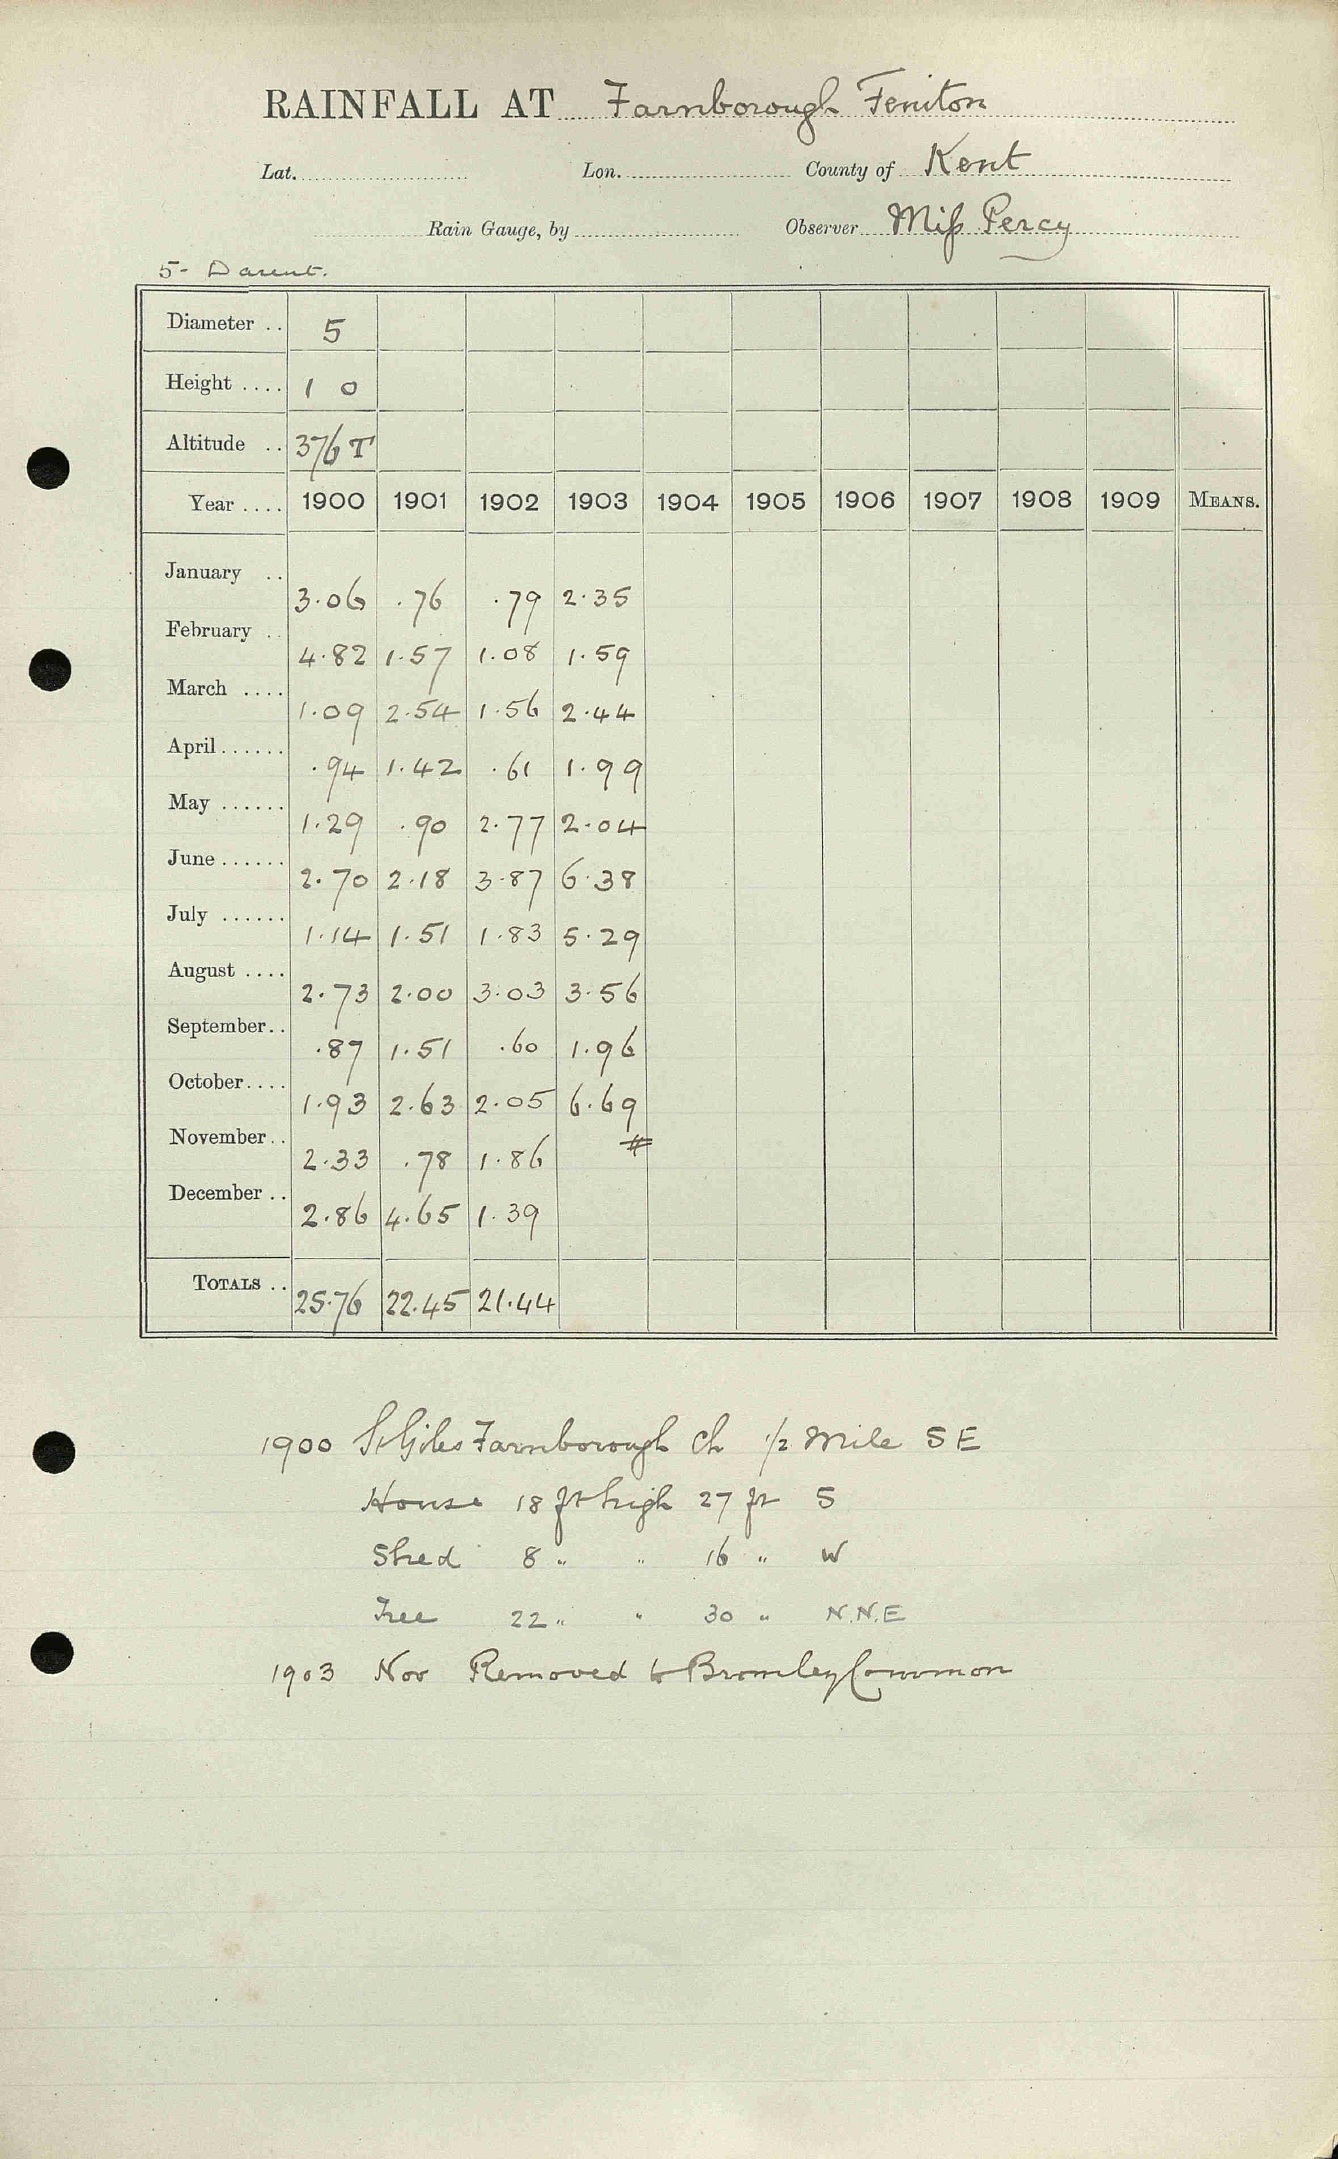 RAINFALL AT Farnborough Feniton
Lat. Lon. County of Kent
Rain Gauge, by Observer Miss Percy
5- Darent.
Diameter .. 5
Height .... 1 0
Altitude .. 376 T
Year .... 1900 1901 1902 1903 1904 1905 1906 1907 1908 1909 MEANS.
January .. 3.06 .76 .79 2.35
February .. 4.82 1.57 1.08 1.59
March .... 1.09 2.54 1.56 2.44
April...... .94 1.42 .61 1.99
May ...... 1.29 .90 2.77 2.04
June...... 2.70 2.18 3.87 6.38
July ...... 1.14 1.51 1.83 5.29
August .... 2.73 2.00 3.03 3.56
September.. .87 1.51 .60 1.96
October.... 1.93 2.63 2.05 6.69
November.. 2.33 .78 1.86 #
December .. 2.86 4.65 1.39
TOTALS .. 25.76 22.45 21.44
1900 St Giles Farnborough Ch 1/2 Mile S E
House 18 ft high 27 ft S
Shed 8 " " 16 " W
Tree 22 " " 30 " N.N.E
1903 Nov Removed to Bromley Common